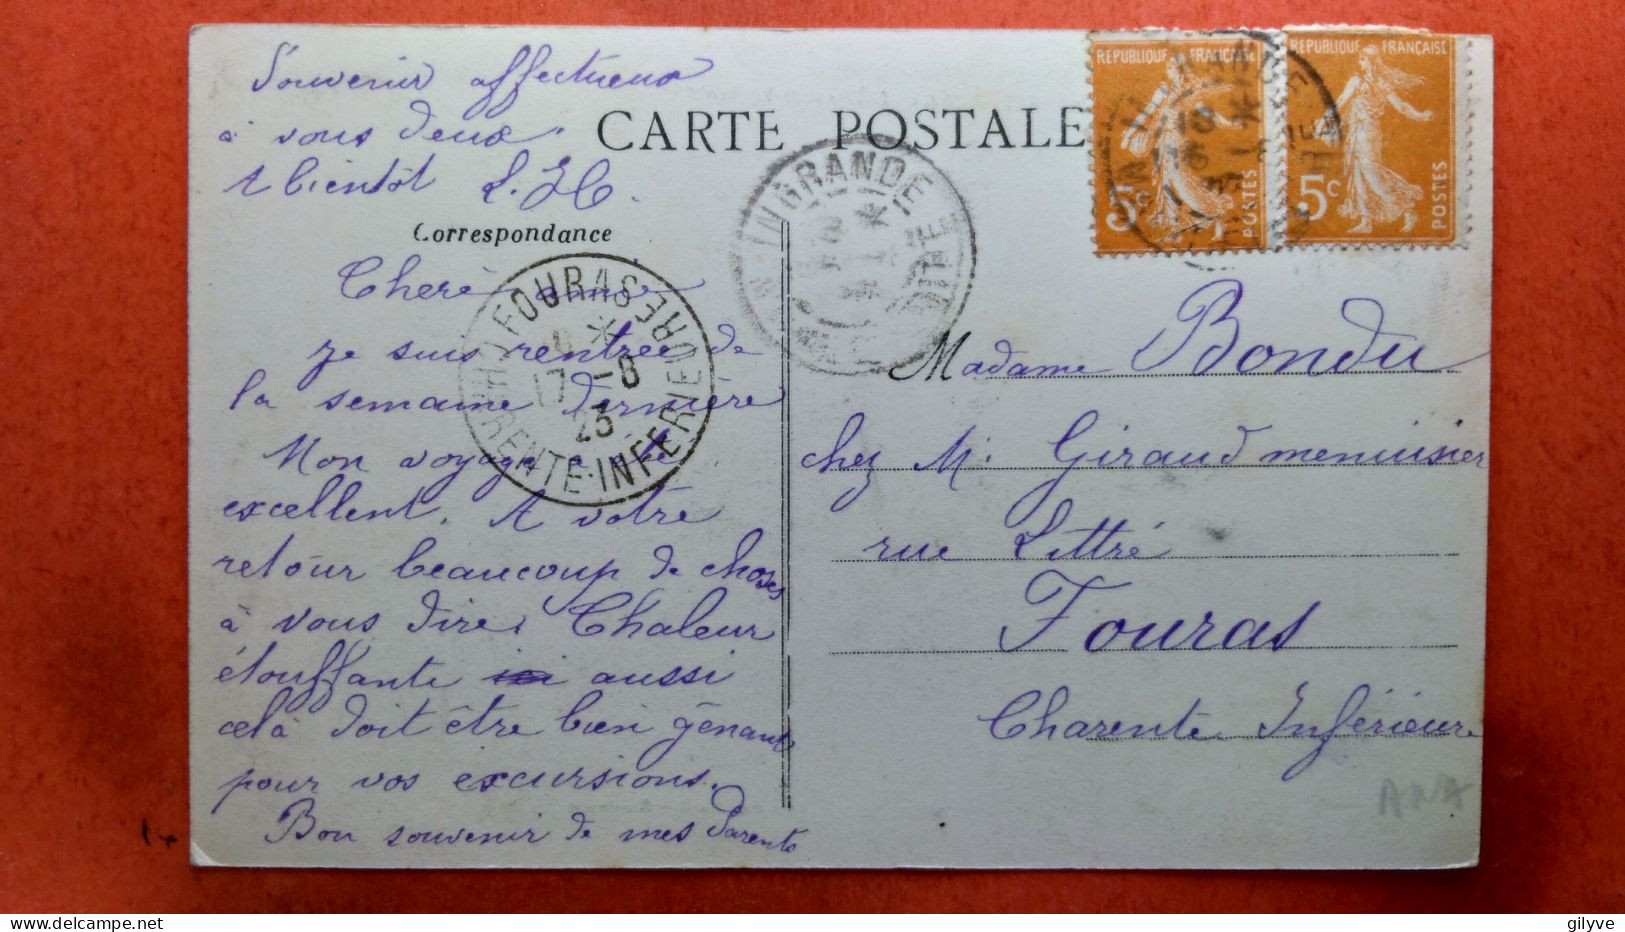 Souvenir affectueux
à vous deux.
A bientôt L. H.
CARTE POSTALE
Correspondance
Cherè amie
Je suis rentrée de
la semaine dernière
Mon voyage a été
excellent. A votre
retour beaucoup de choses
à vous dire. Chaleur
étouffante ici aussi
celà doit être bien gênant
pour vos excursions.
Bon souvenir de mes Parents
FOURAS
17 -8
23
CHARENTE-INFERIEURE
INGRANDE
RÉPUBLIQUE FRANÇAISE
5c POSTES
RÉPUBLIQUE FRANÇAISE
5c POSTES
Madame Bondu
chez M. Giraud menuisier
rue Littré
Fouras
Charente Inférieure
gilyve